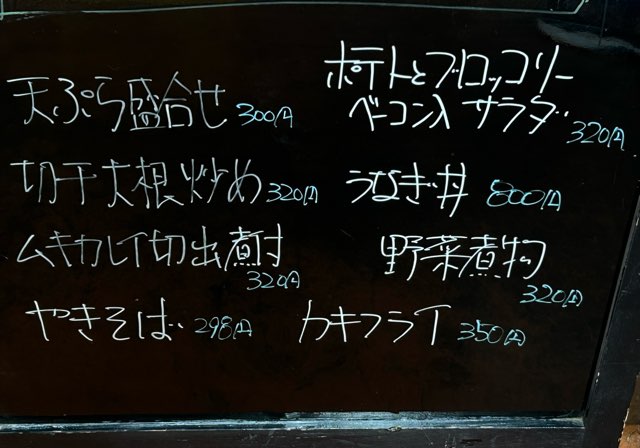 天ぷら盛合せ 300円
切干大根炒め 320円
ムキカレイ切出煮付 320円
やきそば 298円
ポテトとブロッコリー
ベーコン入サラダ 320円
うなぎ丼 800円
野菜煮物 320円
カキフライ 350円